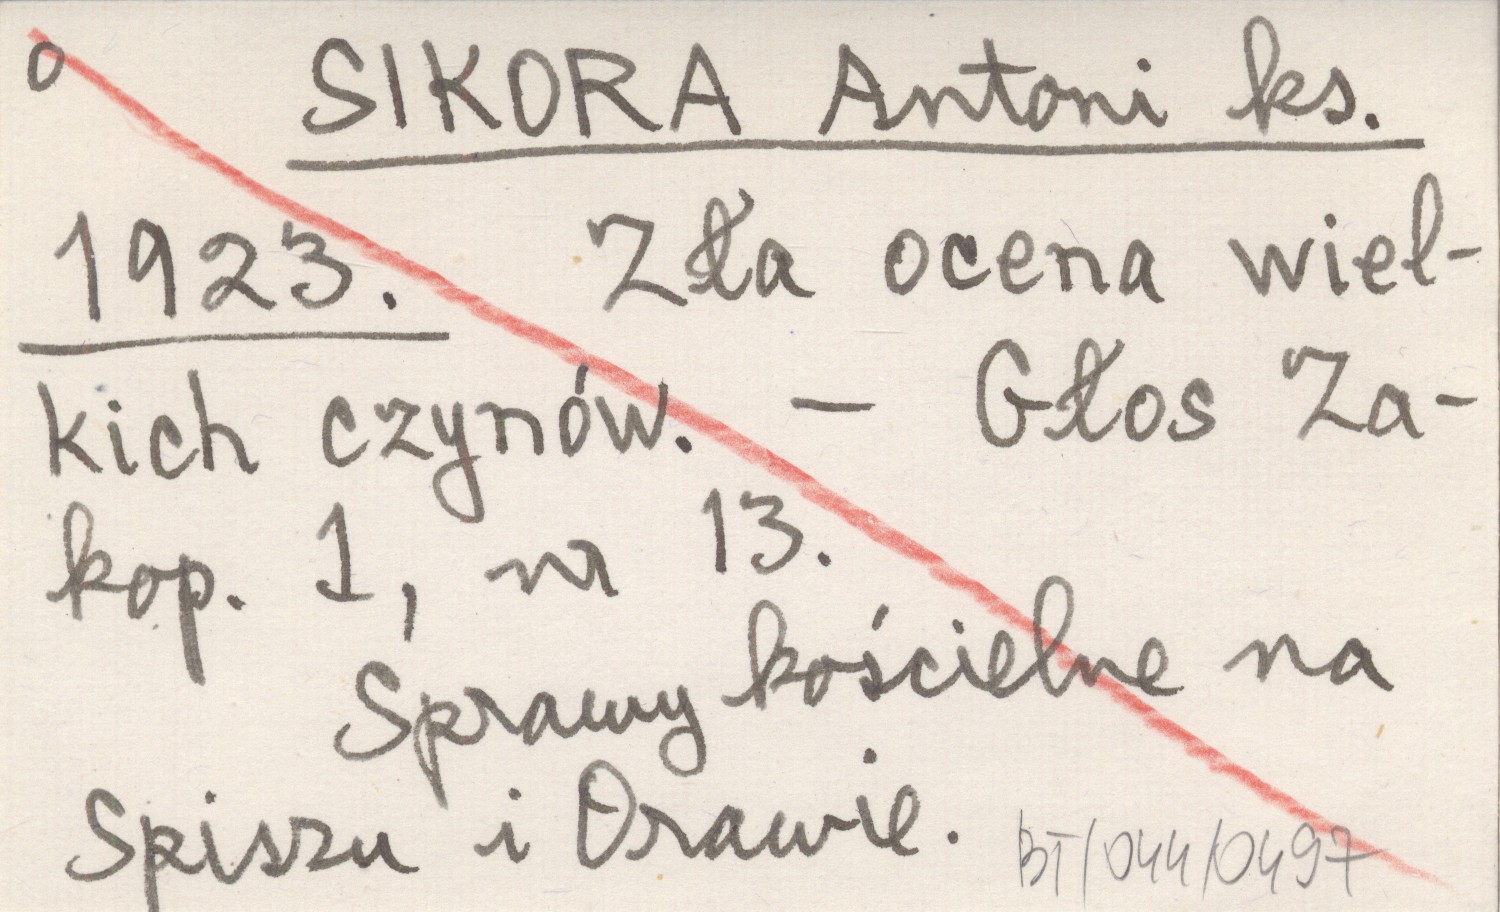 o SIKORA Antoni ks.
1923. Zła ocena wiel-
kich czynów. — Głos Za-
kop. 1, nr 13.
Sprawy kościelne na
Spiszu i Orawie.
BT/044/0497